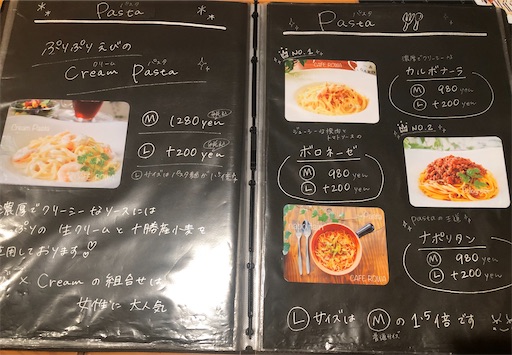 Pasta
ぷりぷりえびの
クリーム パスタ
Cream Pasta
M 1280 yen (税込)
L +200 yen (税込)
Lサイズはパスタ麺が1.5倍な
濃厚でクリーミーなソースには
ぷりの 生クリームと 十勝産小麦を
用しております♡
× Creamの組合せは
女性に大人気
パスタ
Pasta
NO.1
CAFE ROWA
濃厚でクリーミーな
カルボナーラ
M 980 yen
L +200 yen
ジューシーな挽肉と
トマトソースの
ボロネーゼ
M 980 yen
L +200 yen
NO.2
CAFE ROWA
pastaの王道
ナポリタン
M 980 yen
L +200 yen
LサイズはMの1.5倍です
普通サイズ